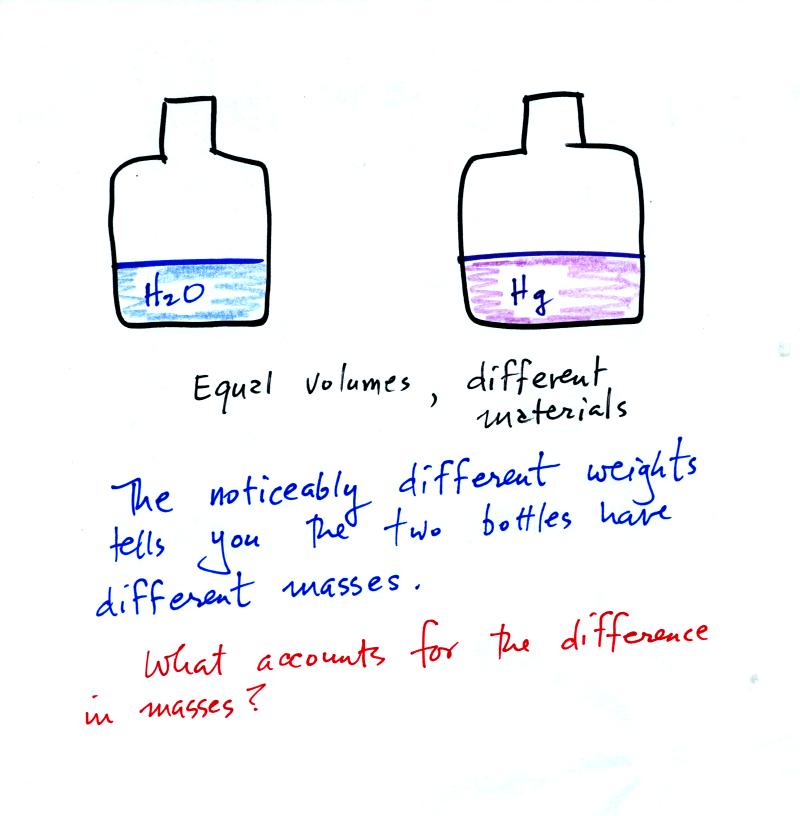 H2O
Hg
Equal volumes, different
materials
The noticeably different weights
tells you the two bottles have
different masses.
What accounts for the difference
in masses?